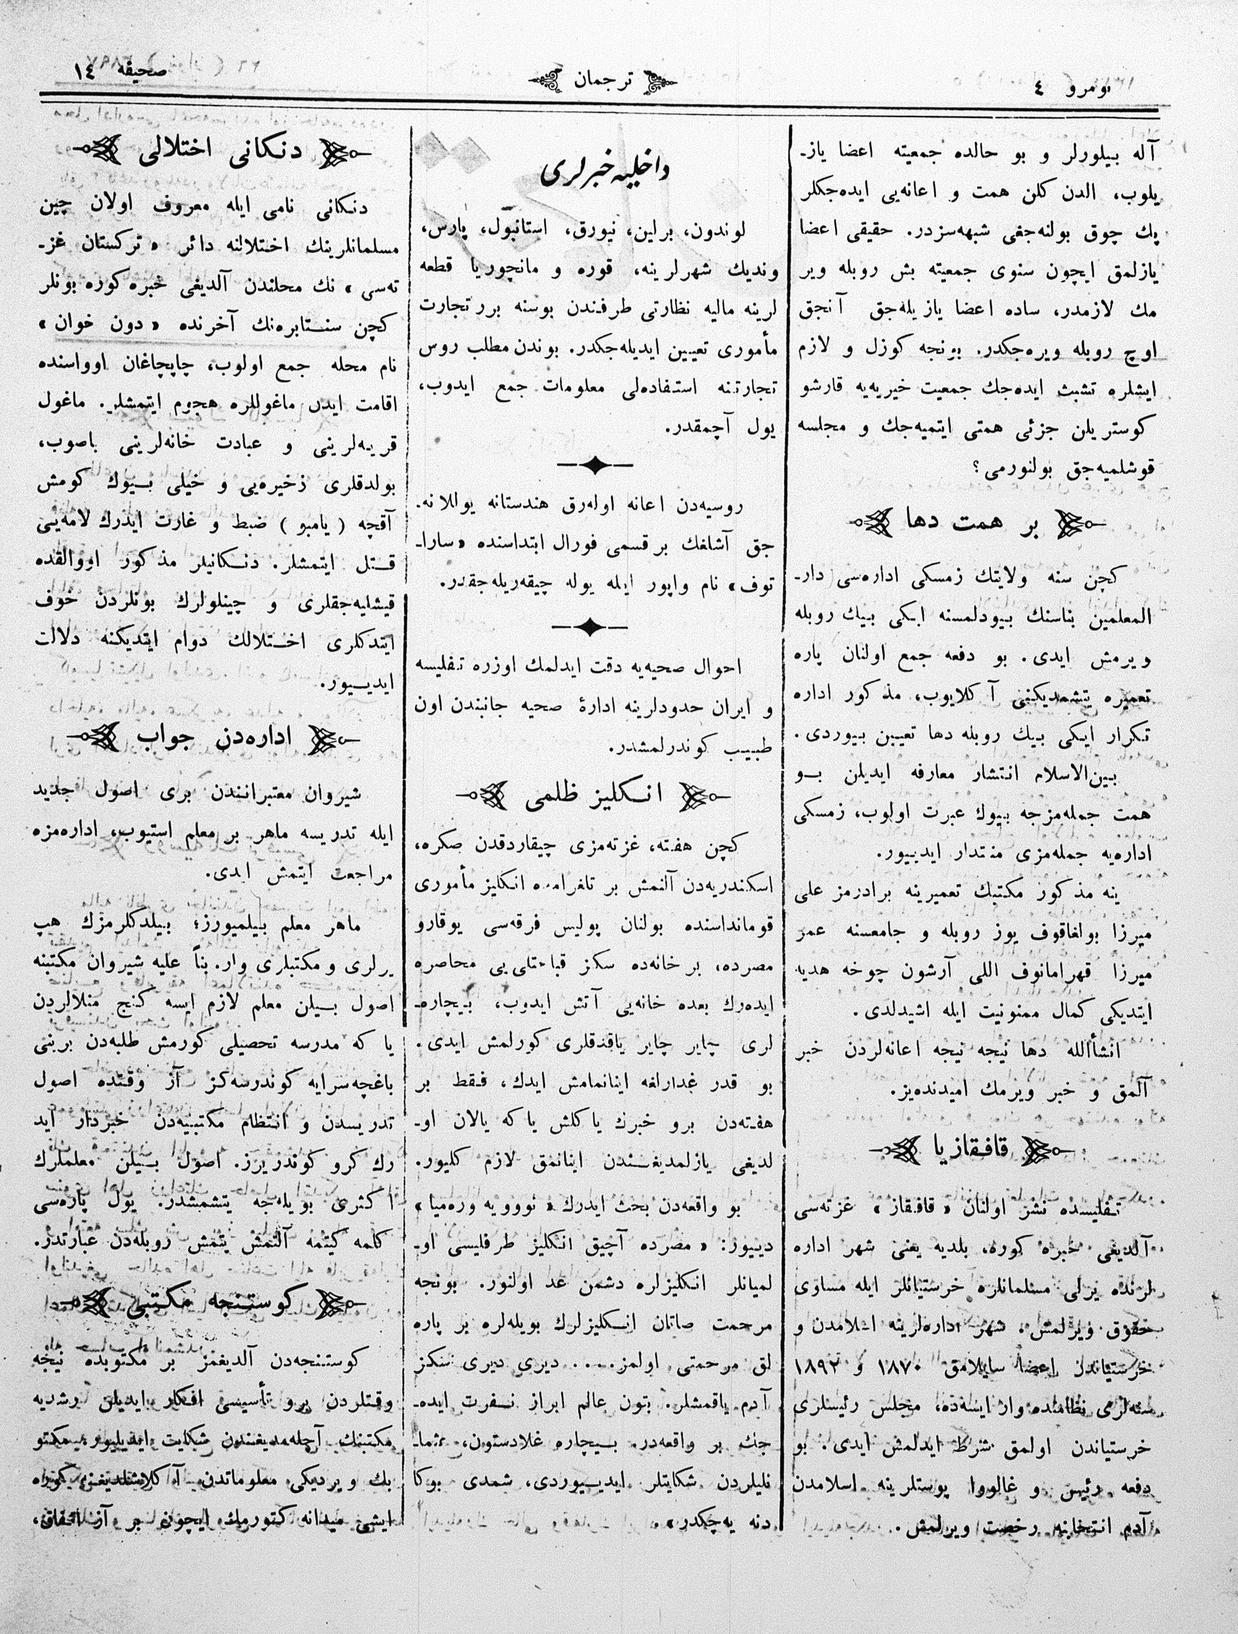 نومرو ٤
ترجمان
صحیفه ١٤
آله بیلورلر و بو حالده جمعیته اعضا یاز-
یلوب، الدن کلن همت و اعانه‌یی ایده‌جکلر
پك چوق بولنه‌جغی شبهه‌سزدر. حقیقی اعضا
یازلمق ایچون سنوی جمعیته بش روبله ویر
مك لازمدر، ساده اعضا یازیله‌جق آنجق
اوچ روبله ویره‌جکدر. بونجه کوزل و لازم
ایشلره تشبث ایده‌جك جمعیت خیریه‌یه قارشو
کوستریلن جزئی همتی ایتمیه‌جك و مجلسه
قوشلمیه‌جق بولنورمی؟
بر همت دها
کچن سنه ولایتك زمسکی اداره‌سی دار-
المعلمین بناسنك بیودلمسنه ایکی بیك روبله
ویرمش ایدی. بو دفعه جمع اولنان پاره
تعمیره یتشمدیکنی آکلایوب، مذکور اداره
تکرار ایکی بیك روبله دها تعیین بیوردی.
بین‌الاسلام انتشار معارفه ایدیلن بو
همت جمله‌مزجه بیوك عبرت اولوب، زمسکی
اداره‌یه جمله‌مزی منتدار ایدییور.
ینه مذکور مکتبك تعمیرینه برادرمز علی
میرزا بولغاقوف یوز روبله و جامعسنه عمر
میرزا قهرامانوف اللی آرشون چوخه هدیه
ایتدیکی کمال ممنونیت ایله اشیدلدی.
انشأالله دها نیجه نیجه اعانه‌لردن خبر
آلمق و خبر ویرمك امیدنده‌یز.
قافقازیا
تفلیسده نشر اولنان «قافقاز» غزته‌سی
آلدیغی خبره کوره، بلدیه یعنی شهر اداره
لرنده یرلی مسلمانلره خرستیانلر ایله مساوی
حقوق ویرلمش. شهر اداره‌لرینه اسلامدن و
خرستیاندن اعضا سایلامق ١٨٧٠ و ١٨٩٢
سنه‌لری نظامنده وار ایسه‌ده، مجلس رئیسلری
خرستیاندن اولمق شرط ایدلمش ایدی. بو
دفعه رئیس و غالووا پوستلرینه اسلامدن
آدم انتخابنه رخصت ویرلمش.
داخلیه خبرلری
لوندون، برلین، نیورق، استانبول، پارس،
وندیك شهرلرینه، قوره و مانچوریا قطعه
لرینه مالیه نظارتی طرفندن بوسنه بررتجارت
مأموری تعیین ایدیله‌جکدر. بوندن مطلب روس
تجارتنه استفاده‌لی معلومات جمع ایدوب،
یول آچمقدر.
روسیه‌دن اعانه اوله‌رق هندستانه یوللانه.
جق آشلغك برقسمی فورال ابتداسنده «سارا-
توف» نام واپور ایله یوله چیقه‌ریله‌جقدر.
احوال صحیه‌یه دقت ایدلمك اوزره تفلیسه
و ایران حدودلرینه ادارهٔ صحیه جانبندن اون
طبیب کوندرلمشدر.
انکلیز ظلمی
کچن هفته، غزته‌مزی چیقاردقدن صکره،
اسکندریه‌دن آلنمش بر تلغرامده انکلیز مأموری
قومانداسنده بولنان پولیس فرقه‌سی یوقارو
مصرده، بر خانه‌ده سکز قباحتلی‌یی محاصره
ایده‌رك بعده خانه‌یی آتش ایدوب، بیچاره-
لری چایر چایر یاقدقلری کورلمش ایدی.
بو قدر غدارلغه اینانمامش ایدك، فقط بر
هفته‌دن برو خبرك یاکلش یاکه یالان او-
لدیغی یازلمدیغندن اینانمق لازم کلیور.
بو واقعه‌دن بحث ایدرك «نووویه وره‌میا»
دییور: «مصرده آچیق انکلیز طرفلیسی او-
لمیانلر انکلیزلره دشمن عد اولنور. بونجه
مرحمت صاتان انکلیزلرك بویله‌لره بر پاره
لق مرحمتی اولمز.... دیری دیری سکز
آدم یاقمشلر. بتون عالم ابراز نفرت ایده-
جك بر واقعه‌در. بیچاره غلادستون، عثما-
نلیلردن شکایتلر ایدییوردی، شمدی بوکا
دنه یه‌چکدر»
دنکانی اختلالی
دنکانی نامی ایله معروف اولان چین
مسلمانلرینك اختلالنه دائر «ترکستان غز-
ته‌سی» نك محلندن آلدیغی خبره‌کوره بونلر
کچن سنتابره‌نك آخرنده «دون خوان»
نام محله جمع اولوب، چاپچاغان اوواسنده
اقامت ایدن ماغوللره هجوم ایتمشلر. ماغول
قریه‌لرینی و عبادت خانه‌لرینی باصوب،
بولدقلری ذخیره‌یی و خیلی بیوك کومش
آقچه (یامبو) ضبط و غارت ایدرك لامه‌یی
قتل ایتمشلر. دنکانیلر مذکور اووالقده
قیشلیه‌جقلری و چینلولرك بونلردن خوف
ایتدکلری اختلالك دوام ایتدیکنه دلالت
ایدییور.
اداره‌دن جواب
شیروان معتبرانندن بری اصول جدید
ایله تدریسه ماهر بر معلم استیوب، اداره‌مزه
مراجعت ایتمش ایدی.
ماهر معلم بیلمیورز؛ بیلدکلرمزك هپ
یرلری و مکتبلری وار. بناً علیه شیروان مکتبنه
اصول بیلن معلم لازم ایسه کنج منلالردن
یا که مدرسه تحصیلی کورمش طلبه‌دن برینی
باغچه‌سرایه کوندرسه‌کز آز وقتده اصول
تدریسدن و انتظام مکتبیه‌دن خبردار اید
رك کرو کوندریرز. اصول بیلن معلملرك
اکثری بویله‌جه یتشمشدر. یول پاره‌سی
کلمه کیتمه آلتمش یتمش روبله‌دن عبارتدر.
کوستنجه مکتبی
کوستنجه‌دن آلدیغمز بر مکتوبده نیجه
وقتلردن برو تأسیسی افکار ایدیلن رشدیه
مکتبنك آچله‌مدیغندن شکایت ایدیلیور. مکتو
بك ویردیکی معلوماتدن آکلاشلدیغنه کوره
ایشی میدانه کتورمك ایچون بر آز اتفاق،